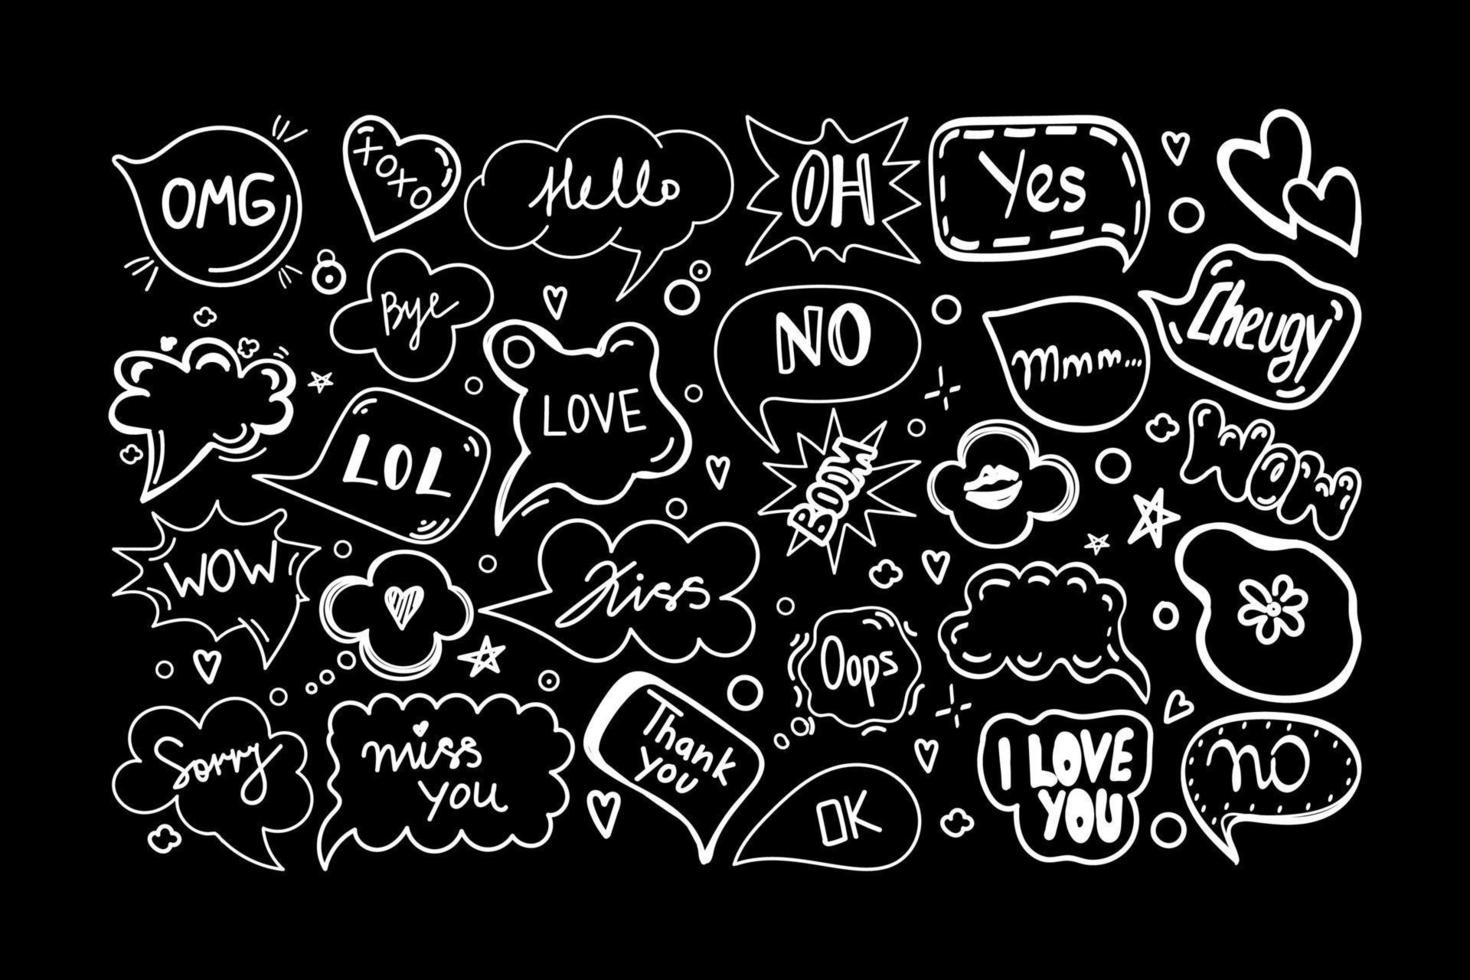 OMG
XOXO
Hello
OH
Yes
Bye
NO
mmm...
Cheugy
LOL
LOVE
BOOM
WOW
WOW
Kiss
Oops
Sorry
miss
you
Thank
you
OK
I LOVE
YOU
NO